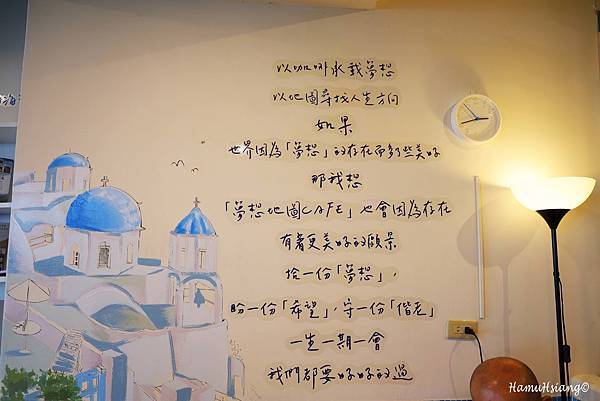 以咖啡承載夢想
以地圖尋找人生方向
如果
世界因為「夢想」的存在而多了些美好
那我想
「夢想地圖CAFE」也會因為存在
有著更美好的願景
拾一份「夢想」,
盼一份「希望」,守一份「偕老」
一生一期一會
我們都要好好的過
HamuHsiang©